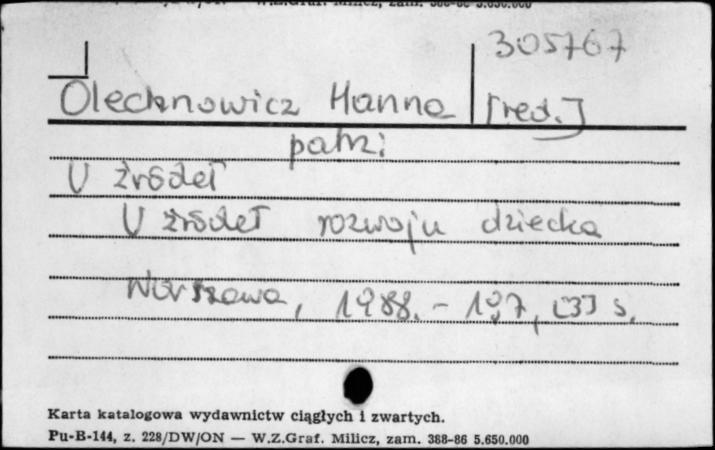 W.Z.Graf. Milicz, zam. 388-86 5.650.000
305767
Olechnowicz Hanna [red.]
patrz:
U źródeł
U źródeł rozwoju dziecka
Warszawa, 1988. - 197, [3] s.
Karta katalogowa wydawnictw ciągłych i zwartych.
Pu-B-144, z. 228/DW/ON — W.Z.Graf. Milicz, zam. 388-86 5.650.000